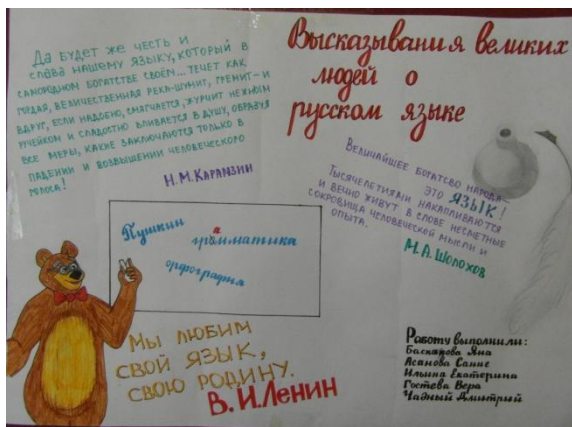 Да будет же честь и
слава нашему языку, который в
самородном богатстве своём... течет как
гордая, величественная река-шумит, гремит-и
вдруг, если надобно, смягчается, журчит нежным
ручейком и сладостно вливается в душу, образуя
все меры, какие заключаются только в
падении и возвышении человеческого
голоса!
Н.М.Карамзин
Высказывания великих
людей о
русском языке
Величайшее богатсво народа-
это ЯЗЫК!
Тысячелетиями накапливаются
и вечно живут в слове несметные
сокровища человеческой мысли и
опыта.
М.А.Шолохов
Пушкин
а
грамматика
орфография
Мы любим
свой язык,
свою родину.
В.И.Ленин
Работу выполнили:
Яна
Асанова Сание
Ильина Екатерина
Гостева Вера
Чадный Дмитрий